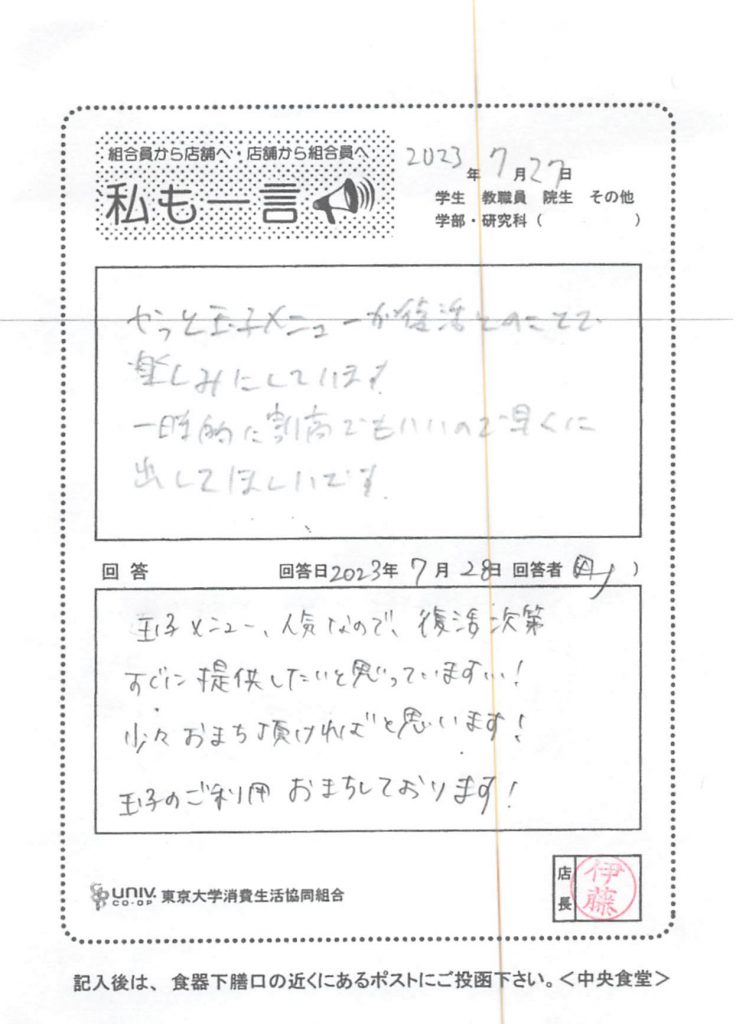 組合員から店舗へ・店舗から組合員へ
私も一言
2023年7月27日
学生 教職員 院生 その他
学部・研究科（ ）
やっと玉子メニューが復活とのことで
楽しみにしています
一時的に割高でもいいので早くに
出してほしいです
回答 回答日2023年7月28日 回答者 ）
玉子メニュー、人気なので、復活次第
すぐに提供したいと思っています!
少々おまち頂ければと思います!
玉子のご利用 おまちしております!
UNIV. CO-OP 東京大学消費生活協同組合
店長 伊藤
記入後は、食器下膳口の近くにあるポストにご投函下さい。＜中央食堂＞